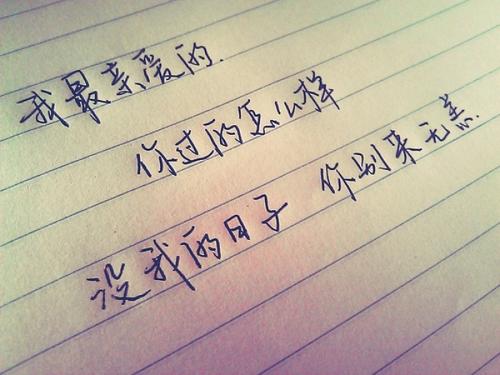 我最亲爱的.
你过的怎么样
没我的日子 你别来无恙.